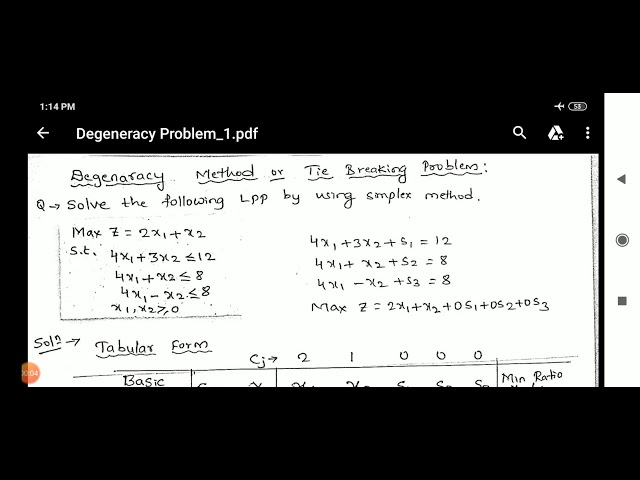 1:14 PM
53
Degeneracy Problem_1.pdf
Degenaracy Method or Tie Breaking Problem:
Q → Solve the following LPP by using simplex method.
Max Z = 2x1 + x2
s.t. 4x1 + 3x2 ≤ 12
4x1 + x2 ≤ 8
4x1 - x2 ≤ 8
x1, x2 ≥ 0
4x1 + 3x2 + s1 = 12
4x1 + x2 + s2 = 8
4x1 - x2 + s3 = 8
Max Z = 2x1 + x2 + 0s1 + 0s2 + 0s3
Soln → Tabular Form
Cj → 2 1 0 0 0
Basic
Min Ratio
00:04